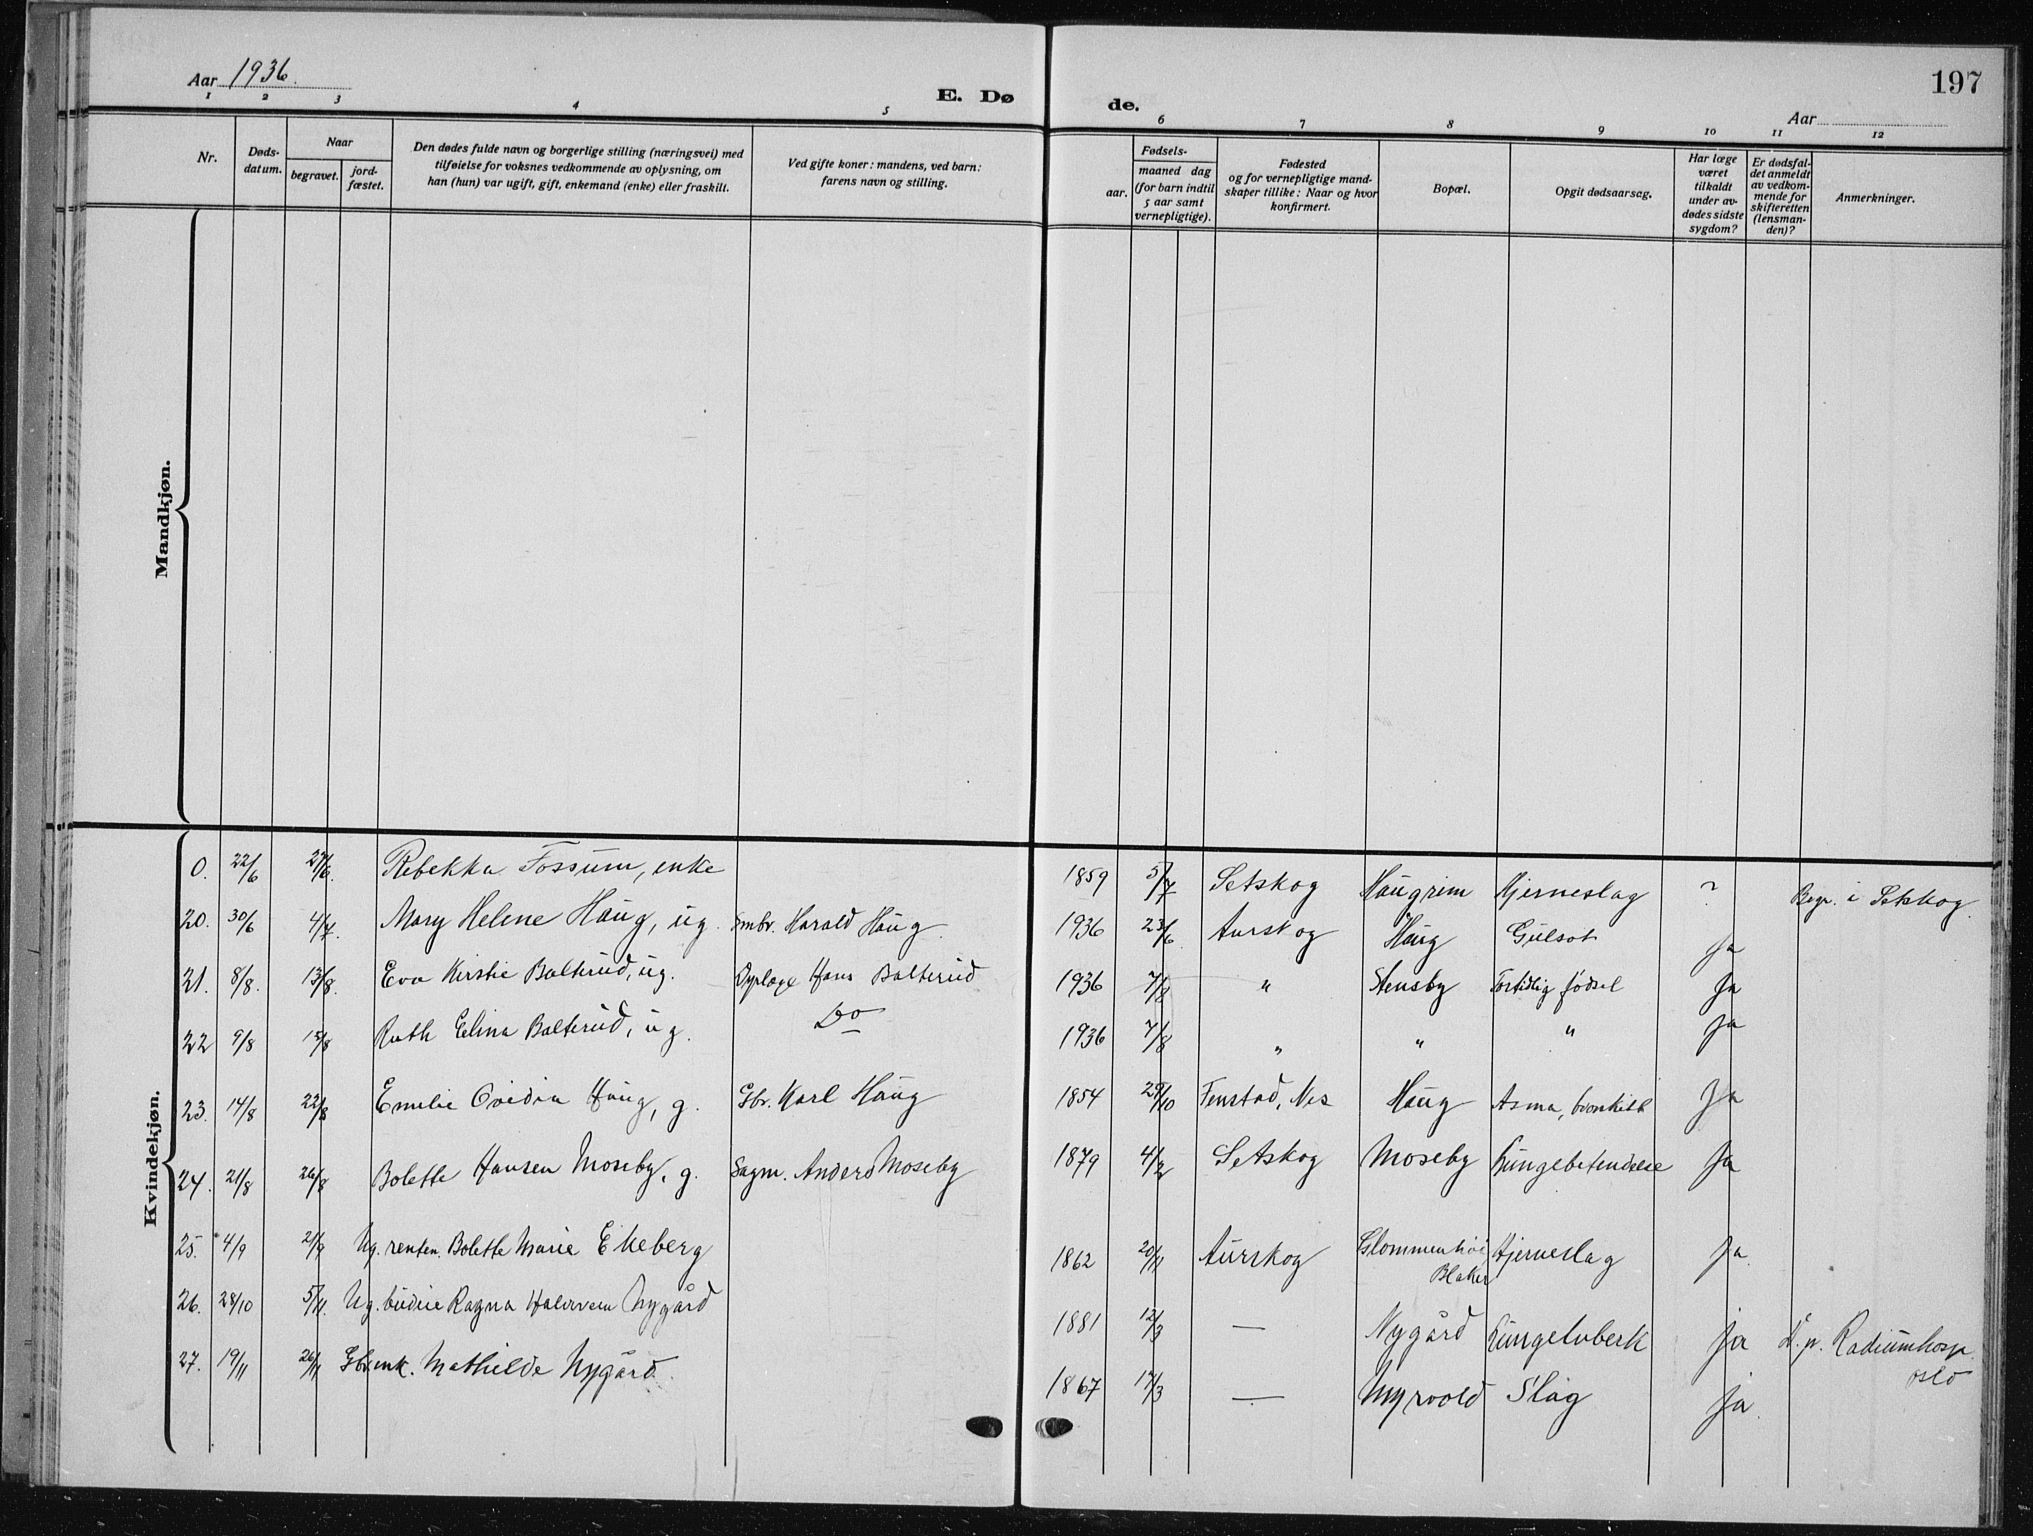 Aar 1936.
E. Dø
de.
197
Aar
1 2 3 4 5
6 7 8 9 10 11 12
Nr.
Døds-
datum.
Naar
begravet.
jord-
fæstet.
Den dødes fulde navn og borgerlige stilling (næringsvei) med
tilføielse for voksnes vedkommende av oplysning, om
han (hun) var ugift, gift, enkemand (enke) eller fraskilt.
Ved gifte koner: mandens, ved barn:
farens navn og stilling.
Fødsels-
aar.
maaned dag
(for barn indtil
5 aar samt
vernepligtige).
Fødested
og for vernepligtige mand-
skaper tillike: Naar og hvor
konfirmert.
Bopæl.
Opgit dødsaarsag.
Har læge
været
tilkaldt
under av-
dødes sidste
sygdom?
Er dødsfal-
det anmeldt
av vedkom-
mende for
skifteretten
(lensman-
den)?
Anmerkninger.
Mandkjøn.
Kvindekjøn.
0. 22/6 27/6. Rebekka Fossum, enke 1859 5/7 Setskog Haugrim Hjerneslag ? Begr. i Setskog.
20. 30/6 4/7. Mary Helene Haug, ug. Smbr. Harald Haug 1936 23/6 Aurskog Haug Gulsot Ja
21. 8/8. 13/8. Eva Kirstie Balterud, ug. Hans Balterud 1936 7/8 " Stensby Fortidlig fødsel Ja
22 9/8 15/8 Ruth Elina Balterud, ug. Do 1936 7/8 " " " Ja
23. 14/8 22/8 Emelie Ovidia Haug, g. Gbr. Karl Haug 1854 29/10 Fenstad, Nes Haug Asma, bronkitt Ja
24. 21/8 26/8 Bolette Hansen Moseby, g. Sagm. Anders Moseby 1879 4/2 Setskog Moseby Lungebetendelse Ja
25. 4/9 21/9 Ug. renten. Bolette Marie Ekeberg 1862 20/11 Aurskog Glommenhøi Blaker Hjerneslag Ja
26. 28/10 5/11. Ug. budeie Ragna Halvorsen Nygård 1881 12/3 — Nygård Lungetuberk Ja D. p. Radiumhosp. Oslo
27. 19/11 26/11 Gbr.enk. Mathilde Nygård. 1867 17/3 — Myrvold Slag Ja.